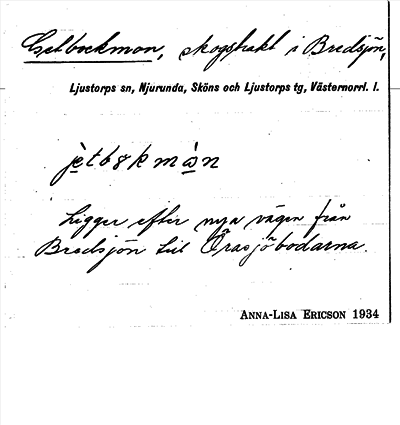 Getbockmon, skogstrakt i Bredsjön,
Ljustorps sn, Njurunda, Sköns och Ljustorps tg, Västernorrl. l.
jètbǫkmàn
Ligger efter nya vägen från
Bredsjön till Örasjöbodarna.
ANNA-LISA ERICSON 1934